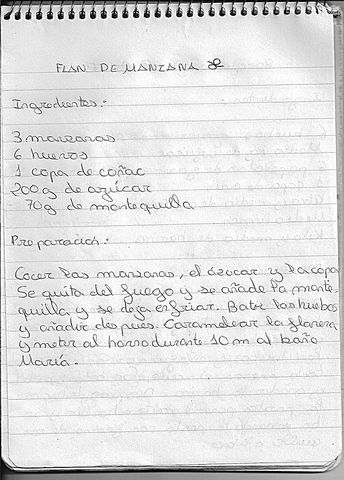 FLAN DE MANZANA
Ingredientes.-
3 manzanas
6 huevos
1 copa de coñac
200 g de azúcar
70 g de mantequilla
Preparación.-
Cocer las manzanas, el ázucar y la copa
Se quita del fuego y se añade la mante-
quilla y se deja enfriar. Batir los huebos
y añadir despues. Caramelear la flanera
y meter al horno durante 10 m al baño
María.